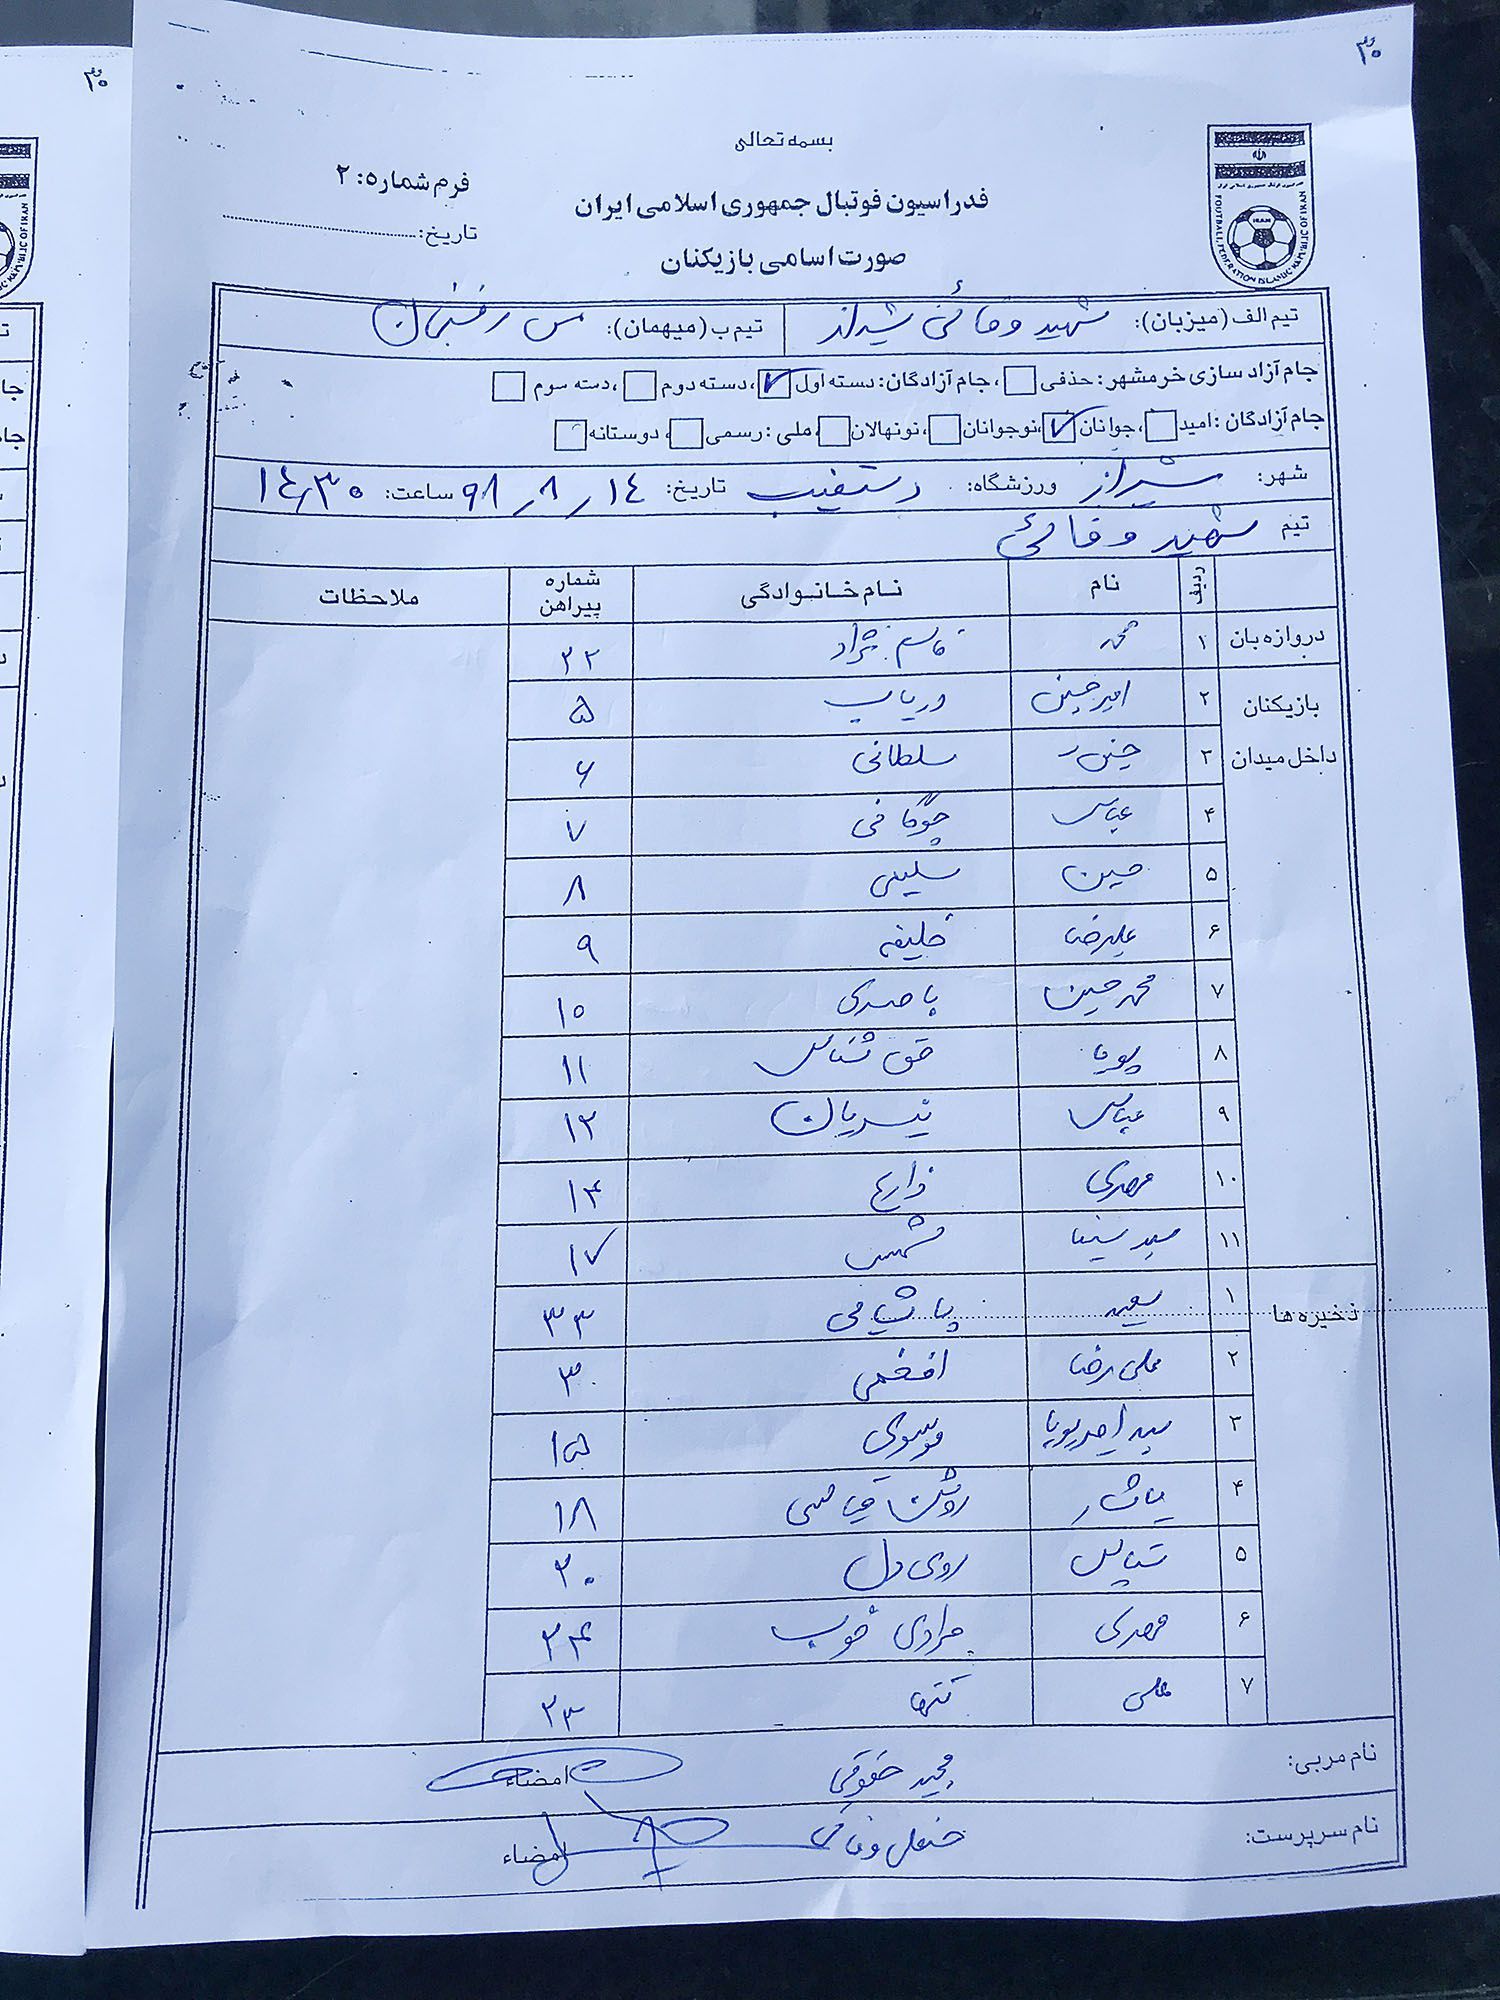 بسمه تعالی
فدراسیون فوتبال جمهوری اسلامی ایران
صورت اسامی بازیکنان
فرم شماره: ۲
تاریخ:
FOOTBALL FEDERATION ISLAMIC REPUBLIC OF IRAN
IRAN
تیم الف (میزبان): شهید وفائی شیراز تیم ب (میهمان): مس رفسنجان
جام آزاد سازی خرمشهر: حذفی ، جام آزادگان: دسته اول ، دسته دوم ، دسته سوم
جام آزادگان: امید ، جوانان ، نوجوانان ، نونهالان ، ملی: رسمی ، دوستانه
شهر: شیراز ورزشگاه: دستغیب تاریخ: ۱۴ ر ۸ ر ۹۸ ساعت: ۱۴٫۳۰
تیم شهید وفائی
ردیف نام نام خانوادگی شماره پیراهن ملاحظات
دروازه بان ۱ محمد قاسم نژاد ۲۲
بازیکنان داخل میدان
۲ امیرحسین دریاب ۵
۳ سلطانی ۶
۴ عباس ۷
۵ حسین سلیمی ۸
۶ علیرضا خلیفه ۹
۷ محمدحسین ۱۰
۸ پوریا حق شناس ۱۱
۹ عباس ۱۳
۱۰ مهدی زارع ۱۴
۱۱ سید سینا شمس ۱۷
ذخیره ها
۱ سعید ۳۳
۲ علی رضا افخمی ۳
۳ سید امیر پویا موسوی ۱۵
۴ روشن ۱۸
۵ روی دل ۲۰
۶ مهدی مرادی خوب ۲۴
۷ علی تنها ۲۳
نام مربی: مجید حقوقی امضاء
نام سرپرست: وفائی امضاء